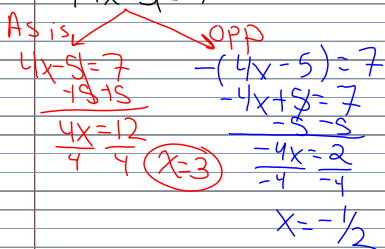 As is
4x-5=7
+5 +5
4x=12
4 4
x=3
Opp
-(4x-5)=7
-4x+5=7
-5 -5
-4x=2
-4 -4
x=-1/2